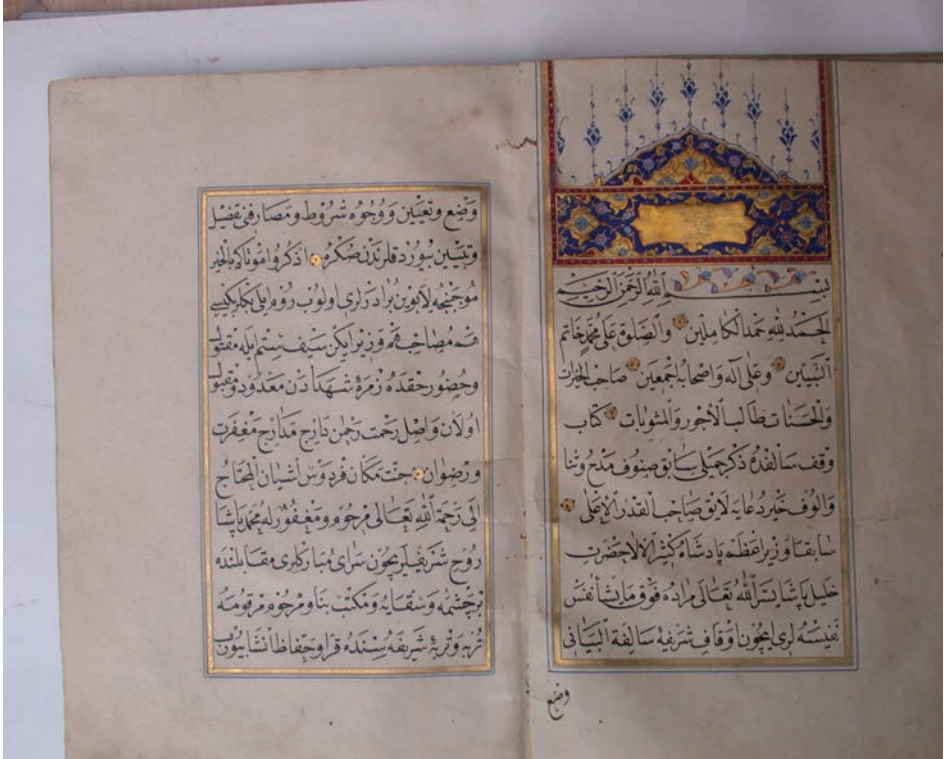 بسم الله الرحمن الرحيم
الحمد لله حمد الكاملين والصلوة على محمد خاتم
النبيين وعلى آله واصحابه اجمعين صاحب الخيرات
والحسنات طالب الأجور والمثوبات كتاب
وقف سالفده ذكر جميلى سابق صنوف مدح وثنا
والوف خير دعايه لايق صاحب القدر الاعلى
سابقا وزير اعظم پادشاه كثير الآلا حضرت
خليل پاشا يسر الله تعالى مراده فوق ما يشأ نفس
نفيسه لرى ايچون اوقاف شريفة سالفة البيانى
وضع
وضع وتعيين ووجوه شروط ومصارفنى تفصيل
وتبيين بيوردقلرندن صكره اذكروا موتاكم بالخير
موجبنجه لابوين برادرلرى اولوب روم ايلى بكلربكيسى
هم مصاحب هم وزير ايكن سيف ستم ايله مقتول
وحضور حقده زمرۀ شهدأدن معدود ومقبول
اولان واصل رحمت رحمن دارج مدارج مغفرت
ورضوان جنت مكان فردوس آشيان المحتاج
الى رحمة الله تعالى مرحوم ومغفور له محمد پاشا
روح شريفلريچون سراى مباركلرى مقابلنده
بر چشمه وسقايه ومكتب بنا ومرحوم مرقومه
تربه وتربۀ شريفه سنده قرا وحفاظ انشا بيورب